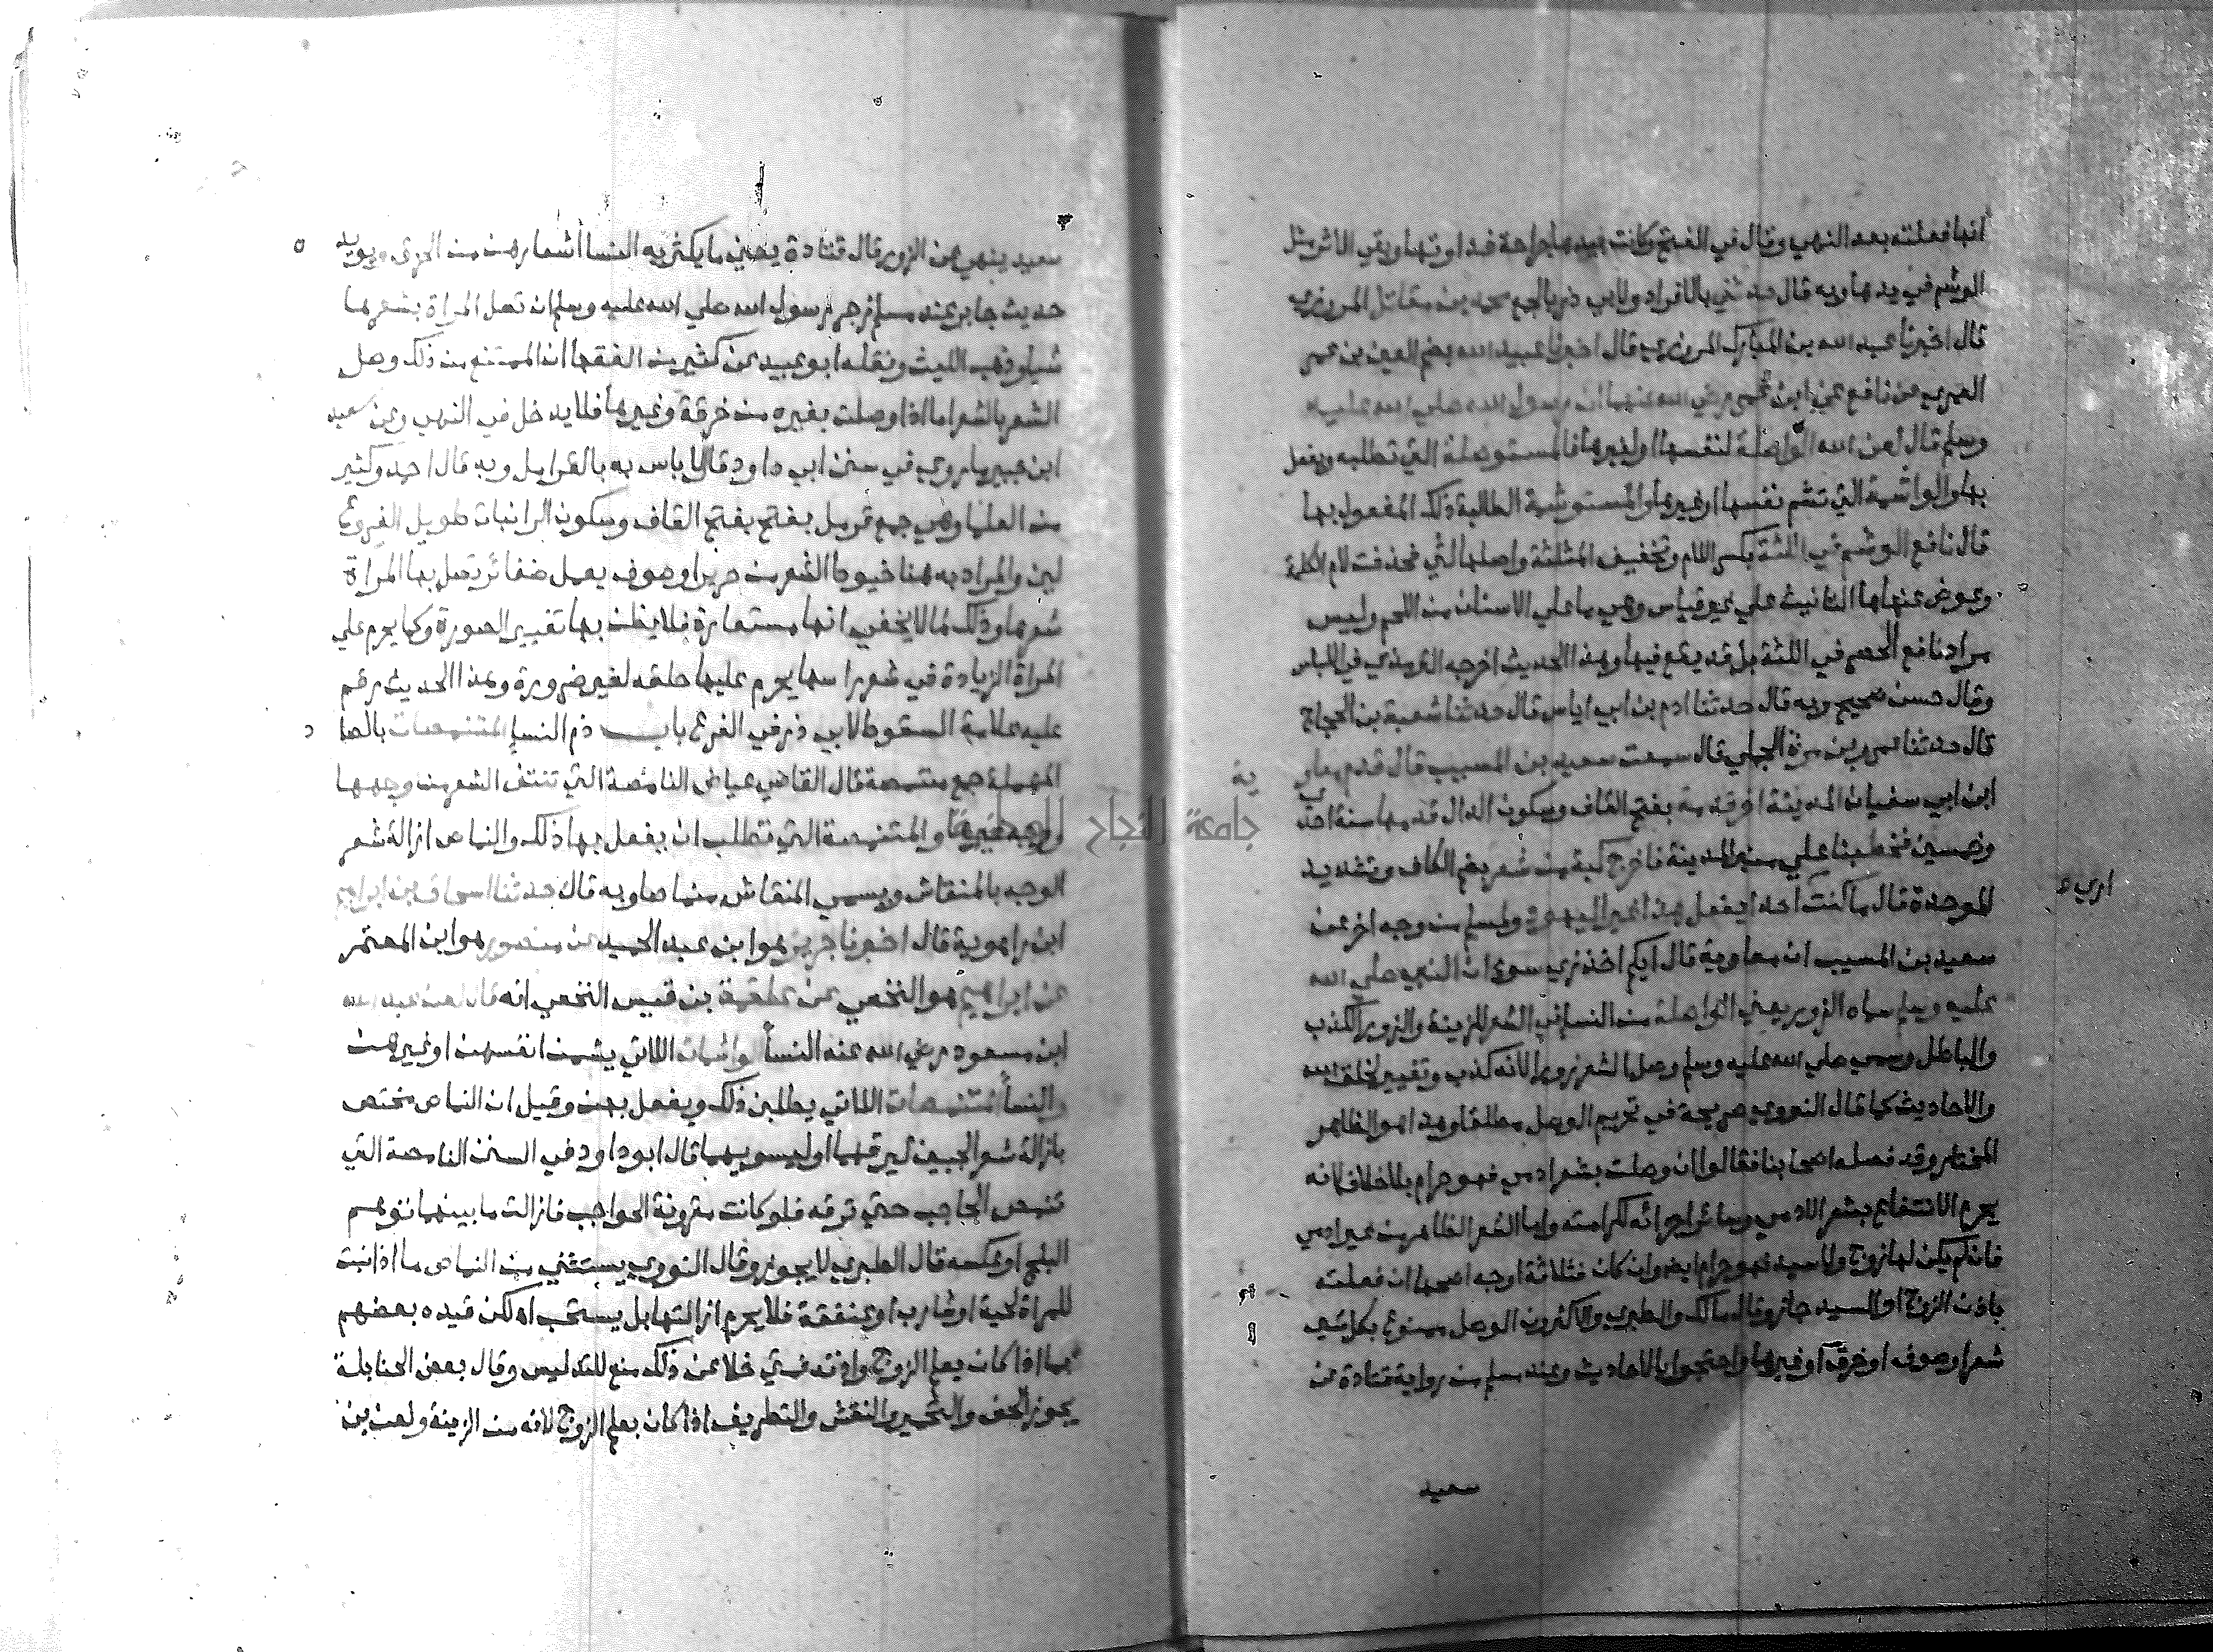 انها فعلته بعد النهي وقال في الفتح وكانت بيدها جراحة فداوتها وبقي الاثر مثل
الوشم في يدها وبه قال حدثني بالافراد ولابي ذر بالجمع محمد بن مقاتل المروزي
قال اخبرنا عبد الله بن المبارك المروزي قال اخبرنا عبيد الله بضم العين بن عمر
العمري عن نافع عن ابن عمر رضي الله عنهما ان رسول الله صلي الله عليه
وسلم قال لعن الله الواصلة لنفسها او لغيرها والمستوصلة التي تطلبه ويفعل
بها والواشمة التي تشم نفسها او غيرها والمستوشمة الطالبة ذلك المفعول بها
قال نافع الوشم في اللثة بكسر اللام وتخفيف المثلثة واصلها لثي فحذفت لام الكلمة
وعوض عنها ها التانيث علي غير قياس وهي ما علي الاسنان من اللحم وليس
مراد نافع الحصر في اللثة بل قد يقع فيها وهذا الحديث اخرجه الترمذي في اللباس
وقال حسن صحيح وبه قال حدثنا ادم بن ابي اياس قال حدثنا شعبة بن الحجاج
قال حدثنا عمرو بن مرة الجملي قال سمعت سعيد بن المسيب قال قدم معاو
ية
ابن ابي سفيان المدينة اخر قدمة بفتح القاف وسكون الدال قدمها سنة احدي
وخمسين فخطبنا علي منبر المدينة فاخرج كبة من شعر بضم الكاف وتشديد
الموحدة قال ما كنت احدا يفعل هذا غير اليهود ولمسلم من وجه اخر عن
اري
سعيد بن المسيب ان معاوية قال ايكم اخذ زي سوء ان النبي صلي الله
عليه وسلم سماه الزور يعني الواصلة من النسا في الشعر للزينة والزور الكذب
والباطل وسمي صلي الله عليه وسلم وصل الشعر زورا لانه كذب وتغيير لخلق الله
والاحاديث كما قال النووي صريحة في تحريم الوصل مطلقا وهذا هو الظاهر
المختار وقد فصله اصحابنا فقالوا ان وصلت بشعر ادمي فهو حرام بلا خلاف لانه
يحرم الانتفاع بشعر الادمي وسائر اجزائه لكرامته واما الشعر الطاهر من غير ادمي
فان لم يكن لها زوج ولا سيد فهو حرام ايضا وان كان فثلاثة اوجه اصحها ان فعلته
باذن الزوج او السيد جاز وقال مالك والطبري والاكثرون الوصل ممنوع بكل شي
شعر او صوف او خرق او غيرها واحتجوا بالاحاديث وعند مسلم من رواية قتادة عن
سعيد
سعيد ينهي عن الزور قال قتادة يعني ما يكثر به النسا أشعارهن من الخرق ويويد
حديث جابر عند مسلم زجر رسول الله صلي الله عليه وسلم ان تصل المراة بشعرها
شيا وذهب الليث ونقله ابو عبيد عن كثير من الفقها ان الممتنع من ذلك وصل
الشعر بالشعر اما اذا وصلت بغيره من خرقة وغيرها فلا يدخل في النهي وعن سعيد
ابن جبير مما روي في سنن ابي داود قال لا باس به بالقرامل وبه قال احمد وكثير
من العلما وهي جمع قرمل بفتح بفتح القاف وسكون الرا نبات طويل الفروع
لين والمراد به هنا خيوط الشعر من حرير او صوف يعمل ضفائر تصل بها المراة
شعرها وذلك لما لا يخفي انها مستعارة فلا يظن بها تغيير الصورة وكما يحرم علي
المراة الزيادة في شعر راسها يحرم عليها حلقه لغير ضرورة وهذا الحديث رقم
عليه علامة السقوط لابي ذر في الفرع باب ذم النسا المتنمصات بالصا
د
المهملة جمع متنمصة قال القاضي عياض النامصة التي تنتف الشعر من وجهها
ووجه غيرها والمتنمصة التي تتطلب ان يفعل بها ذلك والنماص ازالة شعر
الوجه بالمنقاش ويسمي المنقاش منماصا وبه قال حدثنا اسحاق بن ابراهيم
ابن راهوية قال اخبرنا جرير هو ابن عبد الحميد عن منصور هو ابن المعتمر
عن ابراهيم هو النخعي عن علقمة بن قيس النخعي انه قال لعن عبد الله
ابن مسعود رضي الله عنه النسأ الواشمات اللاتي يشمن انفسهن او غيرهن
والنسأ المتنمصات اللاتي يطلبن ذلك ويفعل بهن وقيل ان النماص مختص
بازالة شعر الجبين ليرقهما او ليسويهما قال ابو داود في السنن النامصة التي
تنمص الحاجب حتي ترقه فلو كانت مقرونة الحواجب فازالت ما بينهما توهم
البلج او عكسه قال الطبري لا يجوز وقال النووي يستثني من النماص ما اذا نبت
للمراة لحية او شارب او عنفقة فلا يحرم ازالتها بل يستحب اه لكن قيده بعضهم
بما اذا كان بعلم الزوج واذنه فمتي خلا عن ذلك منع للتدليس وقال بعض الحنابلة
يجوز الحف والتحمير والنقش والتطريف اذا كان بعلم الزوج لانه من الزينة ولعن بن
جامعة النجاح الوطنية